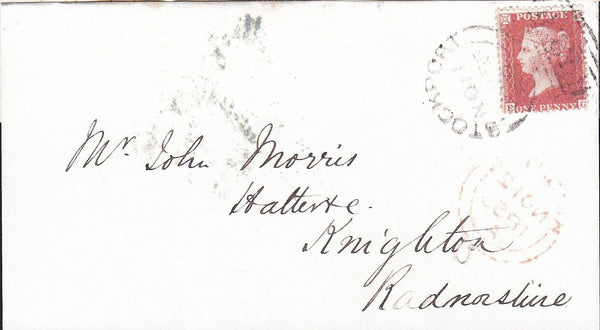 POSTAGE
E ONE PENNY G
STOCKPORT
NO
Mr John Morris
Hatter &c.
Knighton
Radnorshire